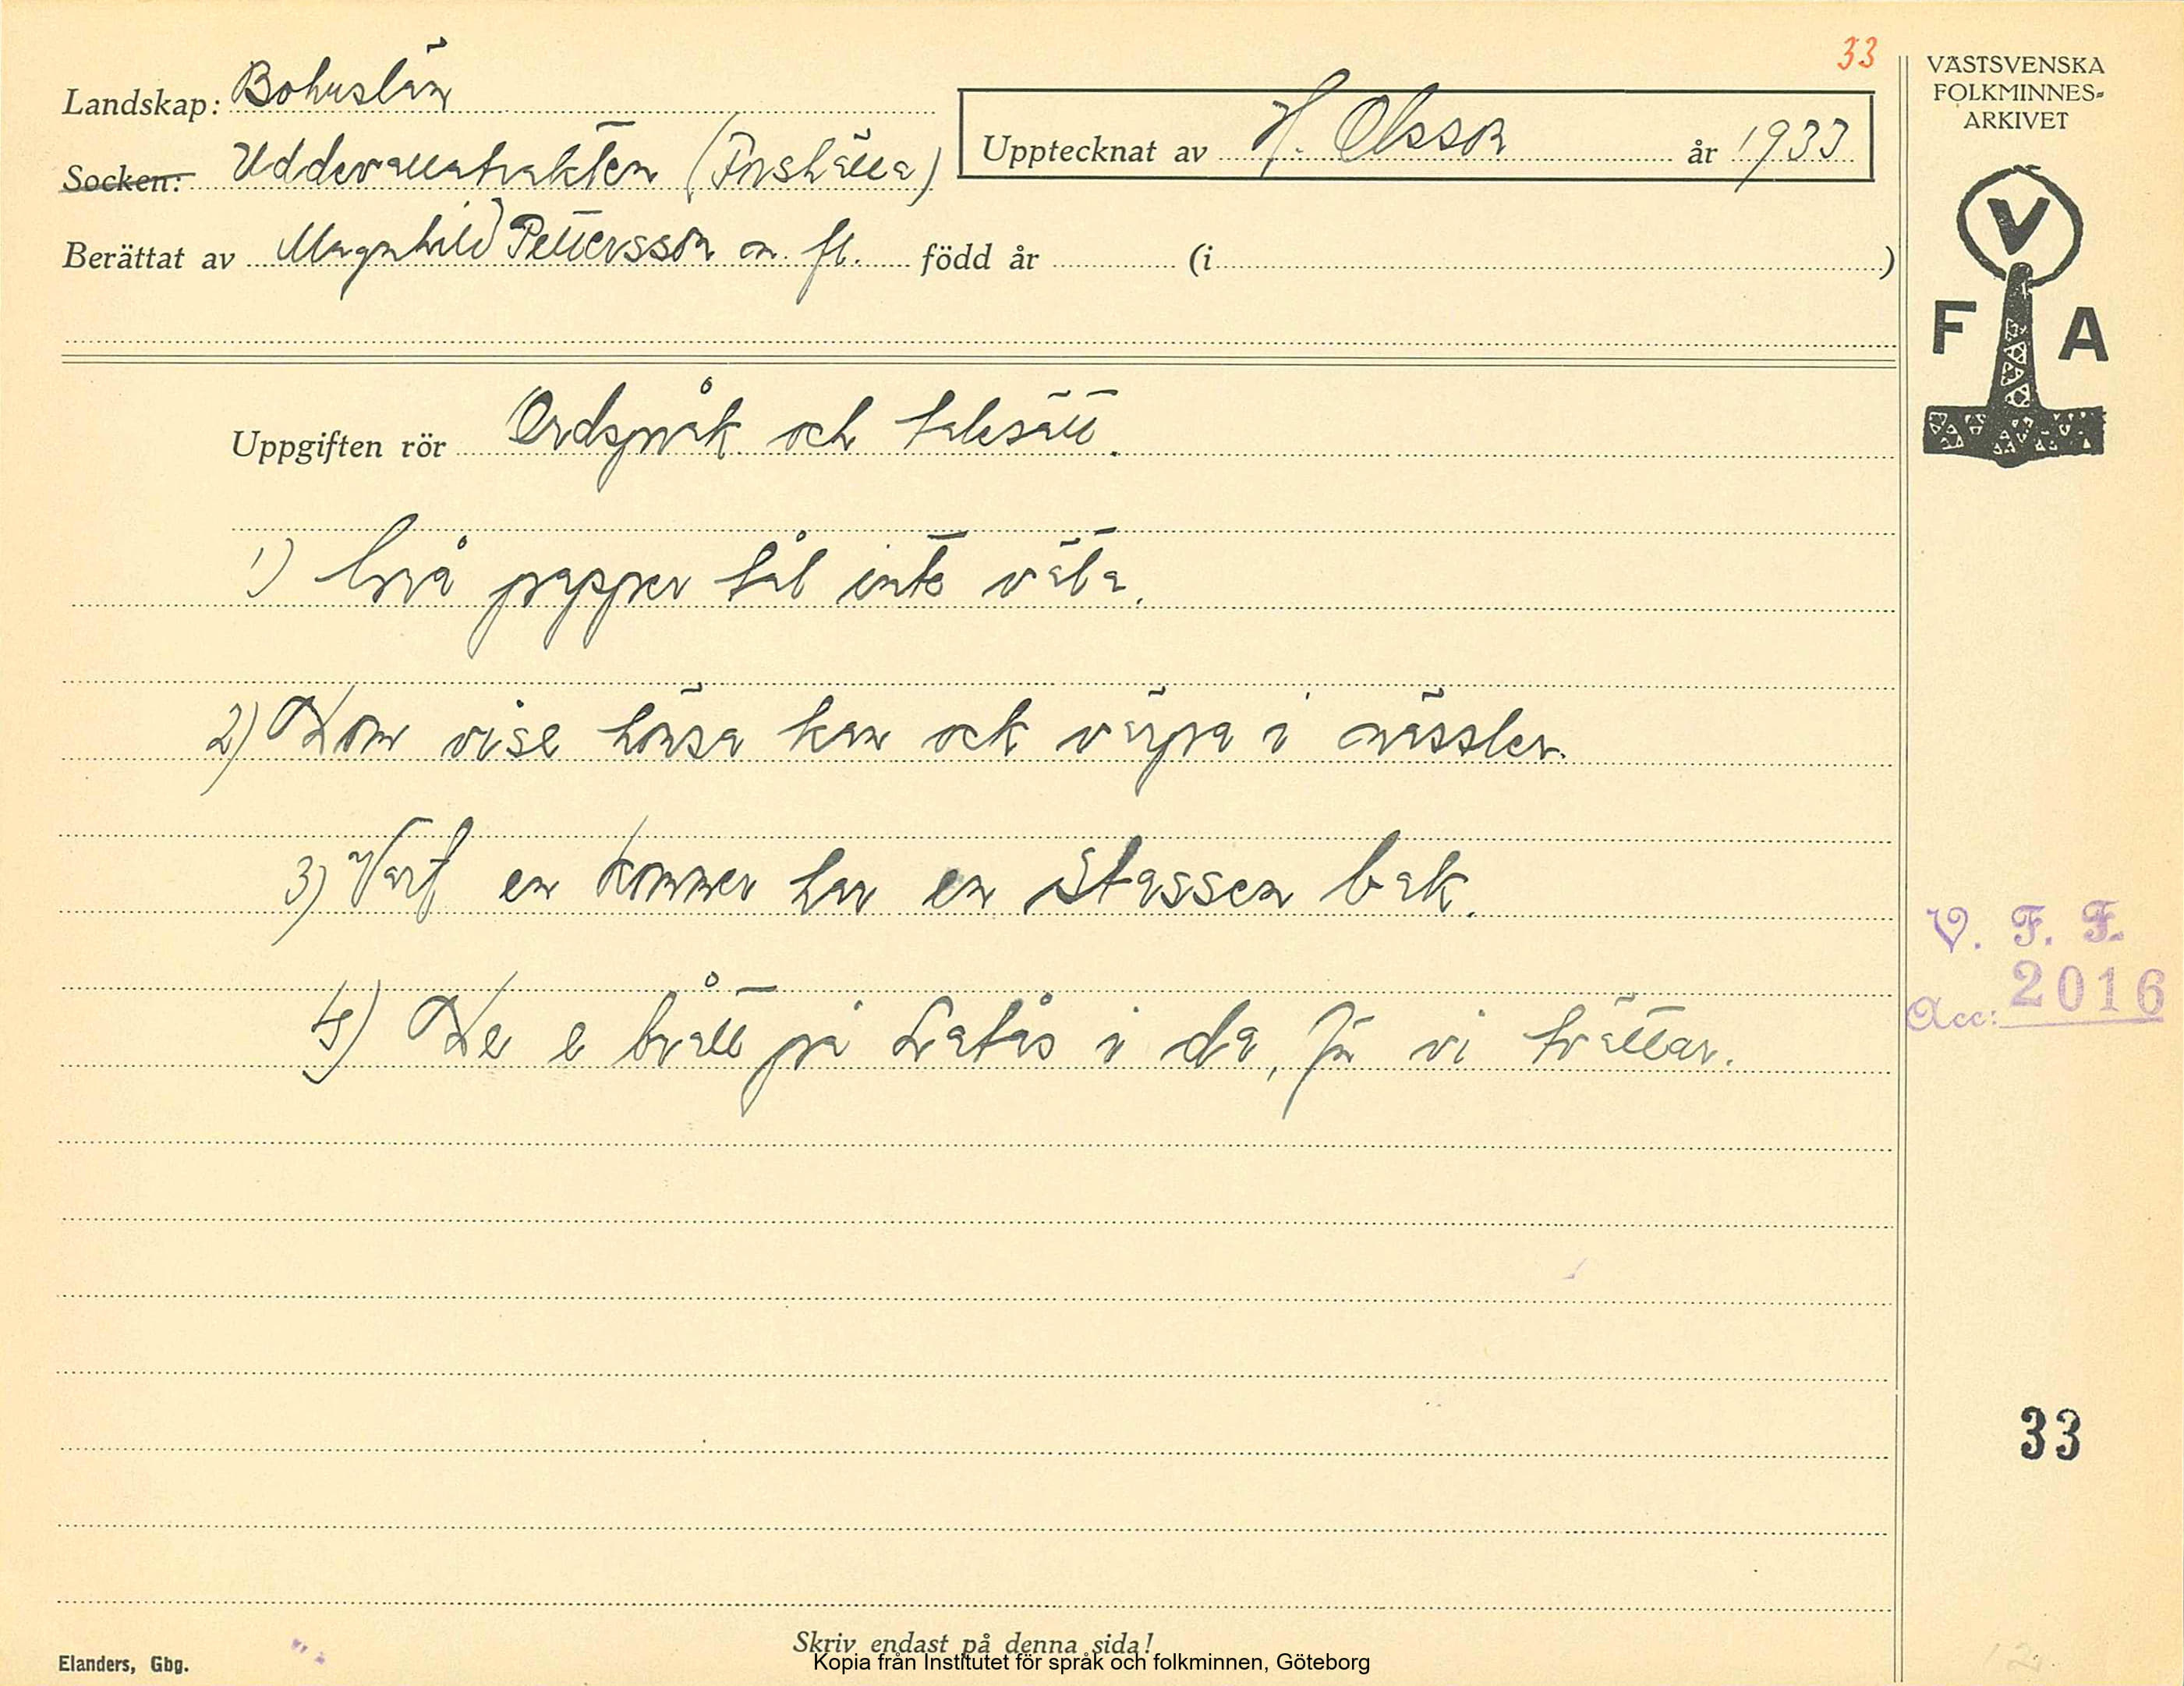 33
VÄSTSVENSKA
FOLKMINNES=
ARKIVET
Landskap: Bohuslän
Upptecknat av H. Olsson år 1933
Socken: Uddevallatrakten (Forshälla)
Berättat av Magnhild Pettersson m. fl. född år (i )
V
F A
Uppgiften rör Ordspråk och talesätt.
1) Grå papper tål inte väta.
2) Dom vise hönsa kan ock värpa i nässler.
3) Vart en kommer har en stassen bak.
V. F. F.
Acc: 2016
4) De e brått på Latås i da, för vi tvättar.
33
Skriv endast på denna sida!
Elanders, Gbg.
Kopia från Institutet för språk och folkminnen, Göteborg